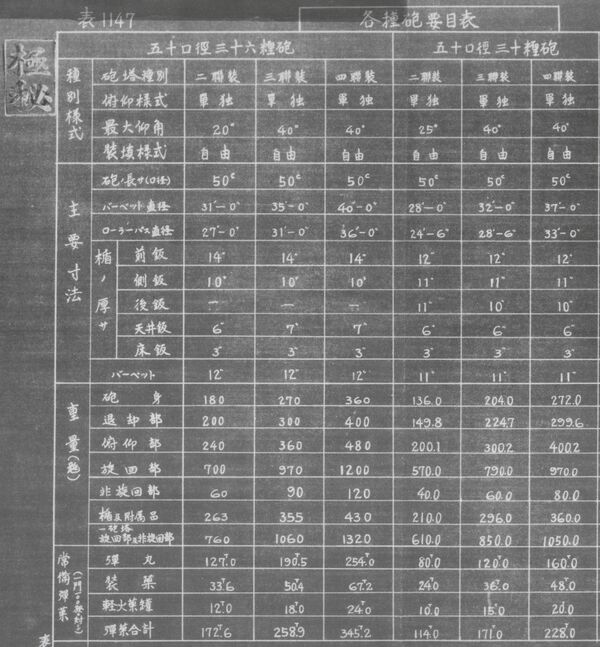 表1147
各種砲要目表
極
秘
五十口徑三十六糎砲 五十口徑三十糎砲
種別樣式
砲塔種別 二聯裝 三聯裝 四聯裝 二聯裝 三聯裝 四聯裝
俯仰樣式 單独 單独 單独 單独 單独 單独
最大仰角 20° 40° 40° 25° 40° 40°
裝填樣式 自由 自由 自由 自由 自由 自由
主要寸法
砲ノ長サ(口径) 50c 50c 50c 50c 50c 50c
バーベット直径 31'-0" 35'-0" 40'-0" 28'-0" 32'-0" 37'-0"
ローラーパス直径 27'-0" 31'-0" 36'-0" 24'-6" 28'-6" 33'-0"
楯ノ厚サ
前鈑 14" 14" 14" 12" 12" 12"
側鈑 10" 10" 10" 11" 11" 11"
後鈑 — — — 11" 10" 10"
天井鈑 6" 7" 7" 6" 6" 6"
床鈑 3" 3" 3" 3" 3" 3"
バーベット 12" 12" 12" 11" 11" 11"
重量(瓲)
砲身 180 270 360 136.0 204.0 272.0
退却部 200 300 400 149.8 224.7 299.6
俯仰部 240 360 480 200.1 300.2 400.2
旋回部 700 970 1200 570.0 790.0 970.0
非旋回部 60 90 120 40.0 60.0 80.0
楯及附属品 263 355 430 210.0 296.0 360.0
一砲塔
旋回部及非旋回部 760 1060 1320 610.0 850.0 1050.0
常備彈薬
彈丸 127T.0 190T.5 254T.0 80T.0 120T.0 160T.0
裝薬 33T.6 50.4 67T.2 24T.0 36T.0 48T.0
輕火薬罐 12T.0 18T.0 24T.0 10T.0 15T.0 20.0
彈薬合計 172T.6 258T.9 345T.2 114T.0 171T.0 228T.0
表